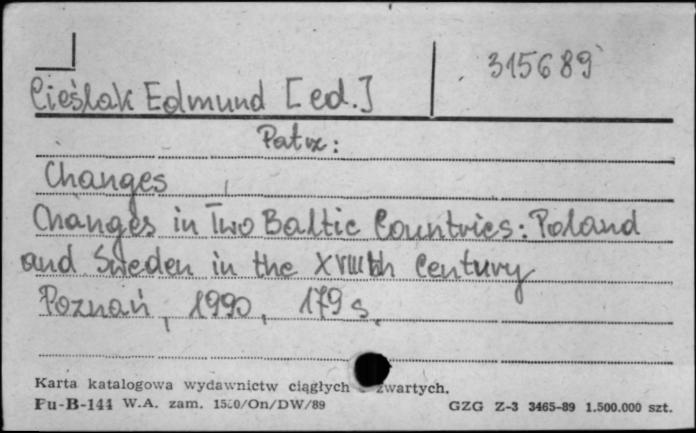 315689
Cieślak Edmund [ed.]
Patrz:
Changes
Changes in Two Baltic Countries: Poland
and Sweden in the XVIIIth Century
Poznań, 1990, 179 s.
Karta katalogowa wydawnictw ciągłych zwartych.
Pu-B-144 W.A. zam. /On/DW/89 GZG Z-3 3465-89 1.500.000 szt.